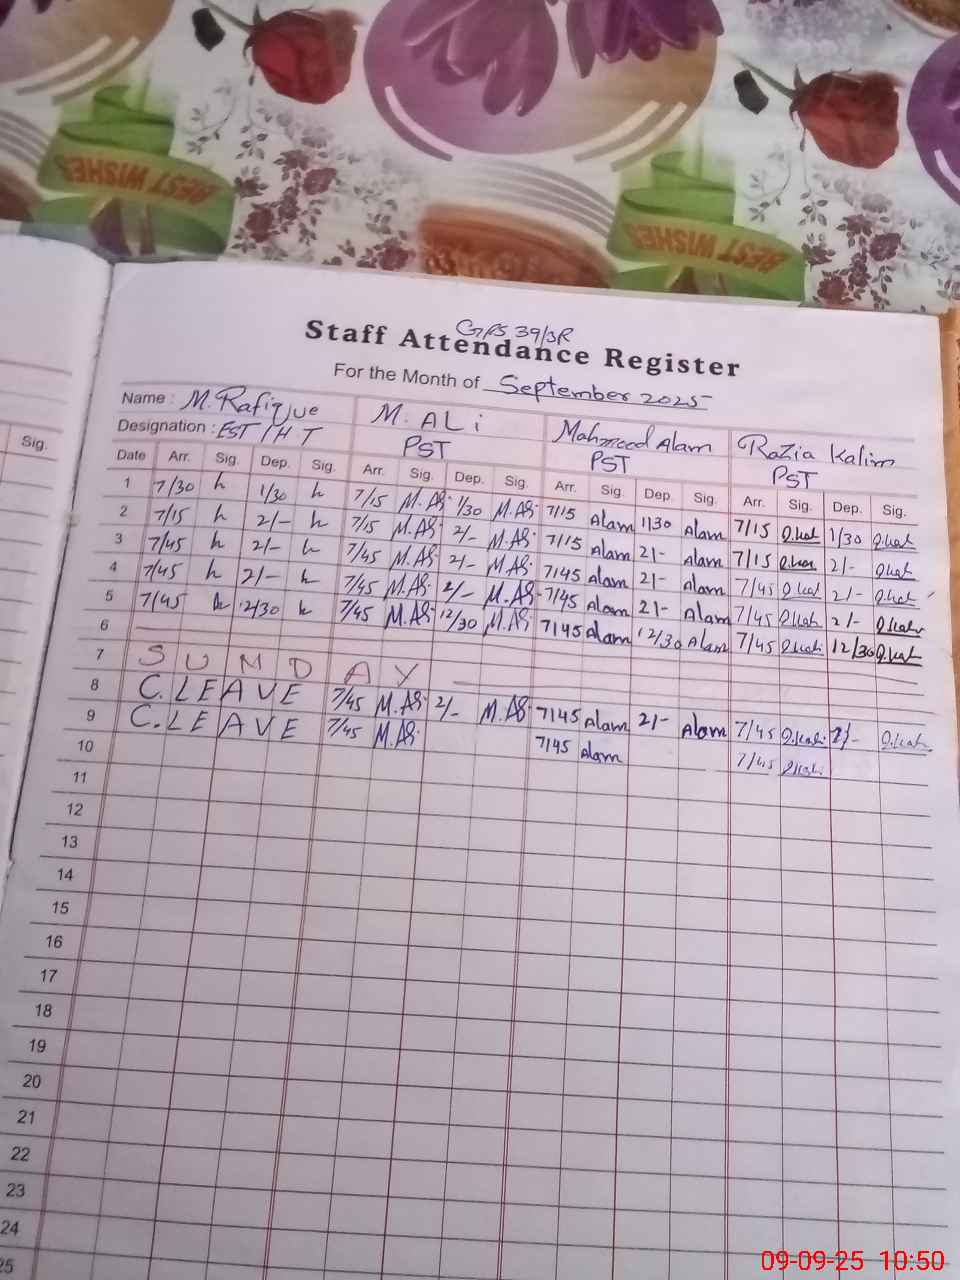 BEST WISHES
BEST WISHES
GPS 39/3R
Staff Attendance Register
For the Month of September 2025
Sig.
Name : M. Rafiqjue M. ALi Mahmood Alam Razia Kalim
Designation : EST/HT PST PST PST
Date Arr. Sig. Dep. Sig. Arr. Sig. Dep. Sig. Arr. Sig. Dep. Sig. Arr. Sig. Dep. Sig.
1 7/30 1/30 7/15 M.Ali 1/30 M.Ali 7/15 Alam 1/30 Alam 7/15 1/30
2 7/15 2/- 7/15 M.Ali 2/- M.Ali 7/15 Alam 2/- Alam 7/15 2/-
3 7/45 2/- 7/45 M.Ali 2/- M.Ali 7/45 Alam 2/- Alam 7/45 2/-
4 7/45 2/- 7/45 M.Ali 2/- M.Ali 7/45 Alam 2/- Alam 7/45 2/-
5 7/45 12/30 7/45 M.Ali 12/30 M.Ali 7/45 Alam 12/30 Alam 7/45 12/30
6
7 SUNDAY
8 C. LEAVE 7/45 M.Ali 2/- M.Ali 7/45 Alam 2/- Alam 7/45 2/-
9 C. LEAVE 7/45 M.Ali 7/45 Alam 7/45
10
11
12
13
14
15
16
17
18
19
20
21
22
23
24
25
09-09-25 10:50